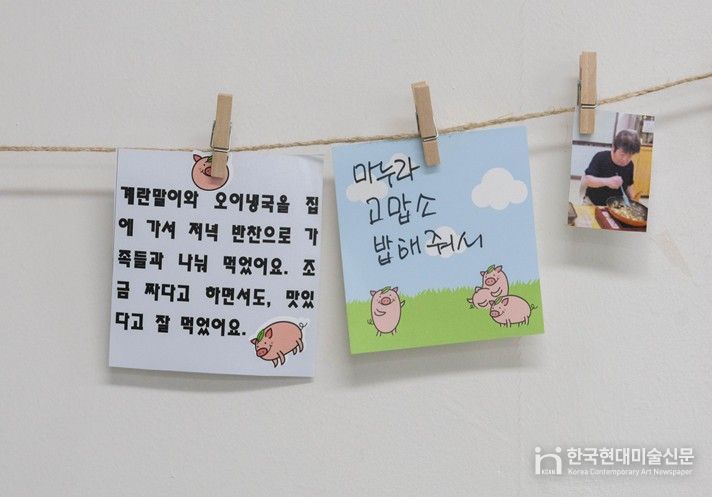 계란말이와 오이냉국을 집
에 가서 저녁 반찬으로 가
족들과 나눠 먹었어요. 조
금 짜다고 하면서도, 맛있
다고 잘 먹었어요.
마누라
고맙소
밥해줘서
KCAN
한국현대미술신문
Korea Contemporary Art Newspaper